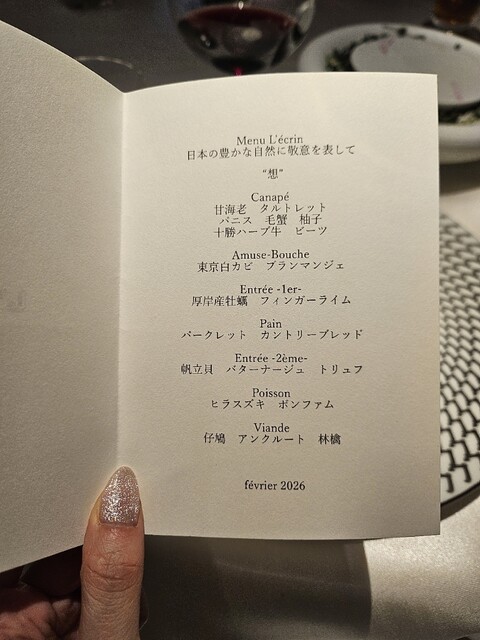 Menu L'écrin
日本の豊かな自然に敬意を表して
“想”
Canapé
甘海老　タルトレット
パニス　毛蟹　柚子
十勝ハーブ牛　ビーツ
Amuse-Bouche
東京白カビ　ブランマンジェ
Entrée -1er-
厚岸産牡蠣　フィンガーライム
Pain
バークレット　カントリーブレッド
Entrée -2ème-
帆立貝　バターナージュ　トリュフ
Poisson
ヒラスズキ　ボンファム
Viande
仔鳩　アンクルート　林檎
février 2026